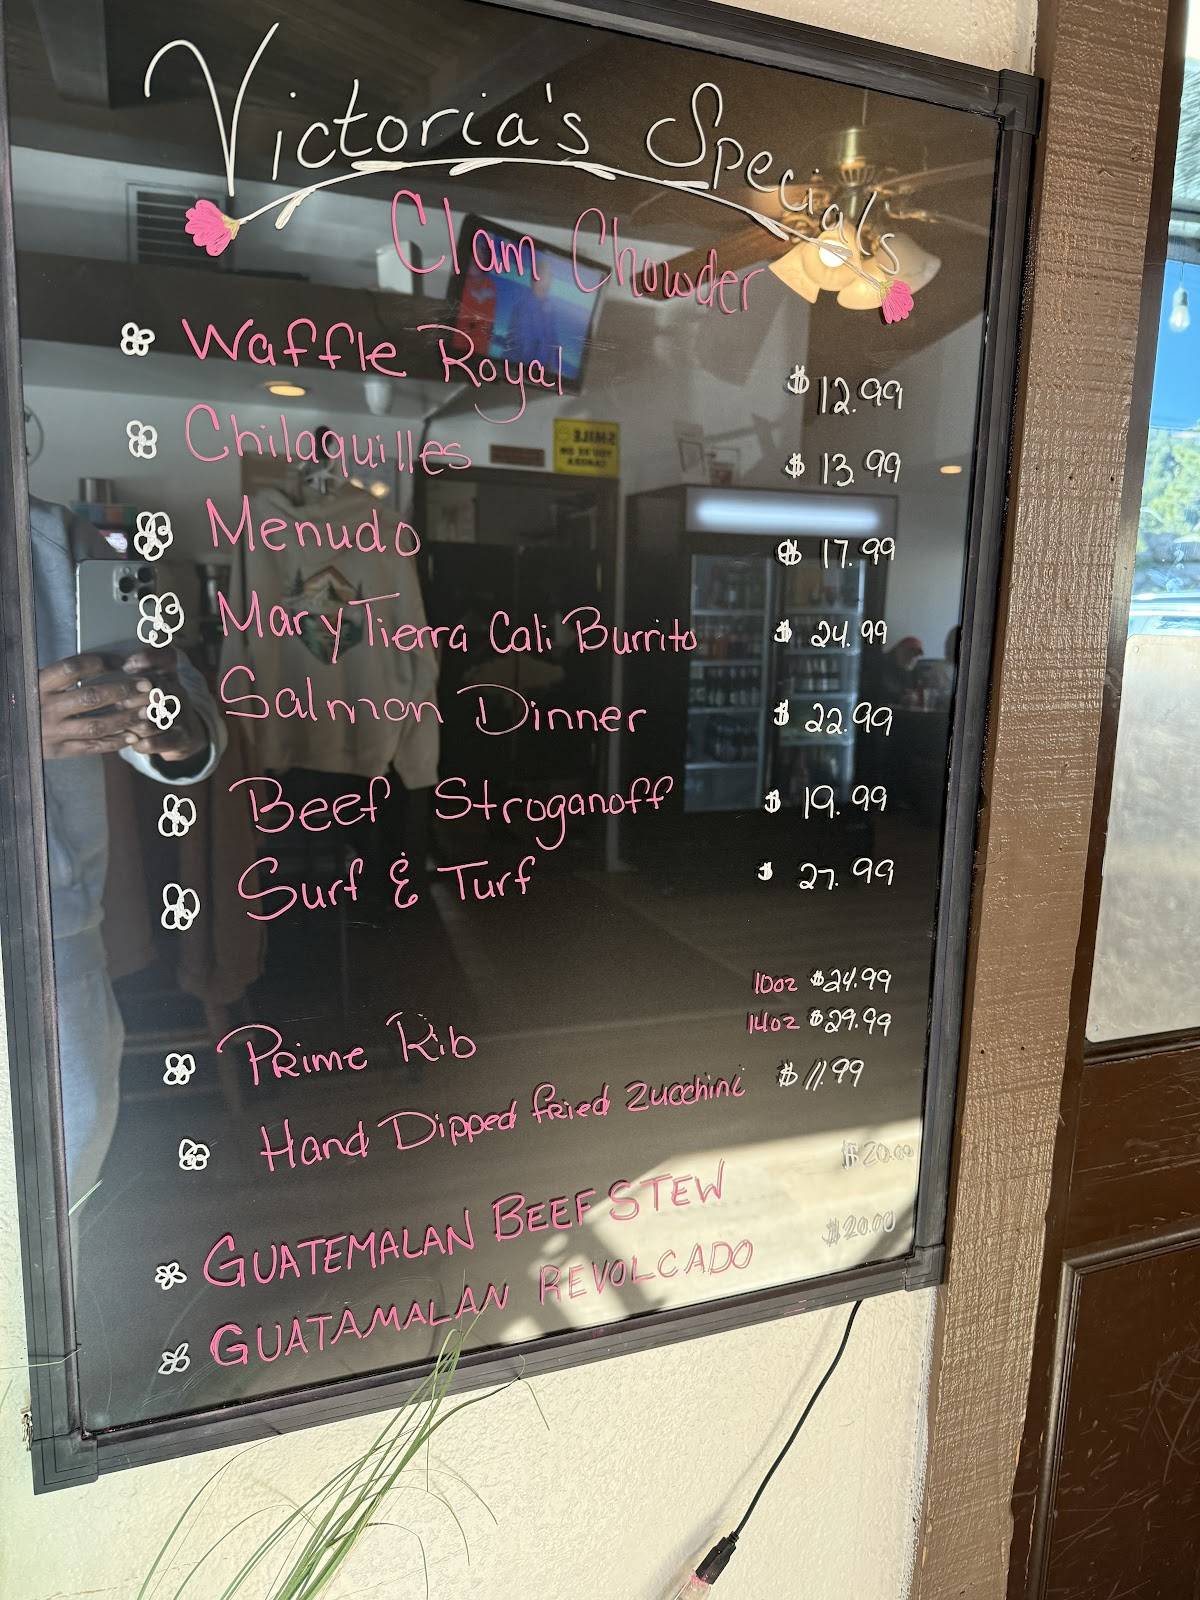 Victoria's Specials
Clam Chowder
Waffle Royal $12.99
Chilaquilles $13.99
Menudo $17.99
Mary Tierra Cali Burrito $24.99
Salmon Dinner $22.99
Beef Stroganoff $19.99
Surf & Turf $27.99
10oz $24.99
14oz $29.99
Prime Rib
Hand Dipped fried Zucchini $11.99
GUATEMALAN BEEF STEW $20.00
GUATAMALAN REVOLCADO $20.00
SMILE
YOU'RE ON
CAMERA